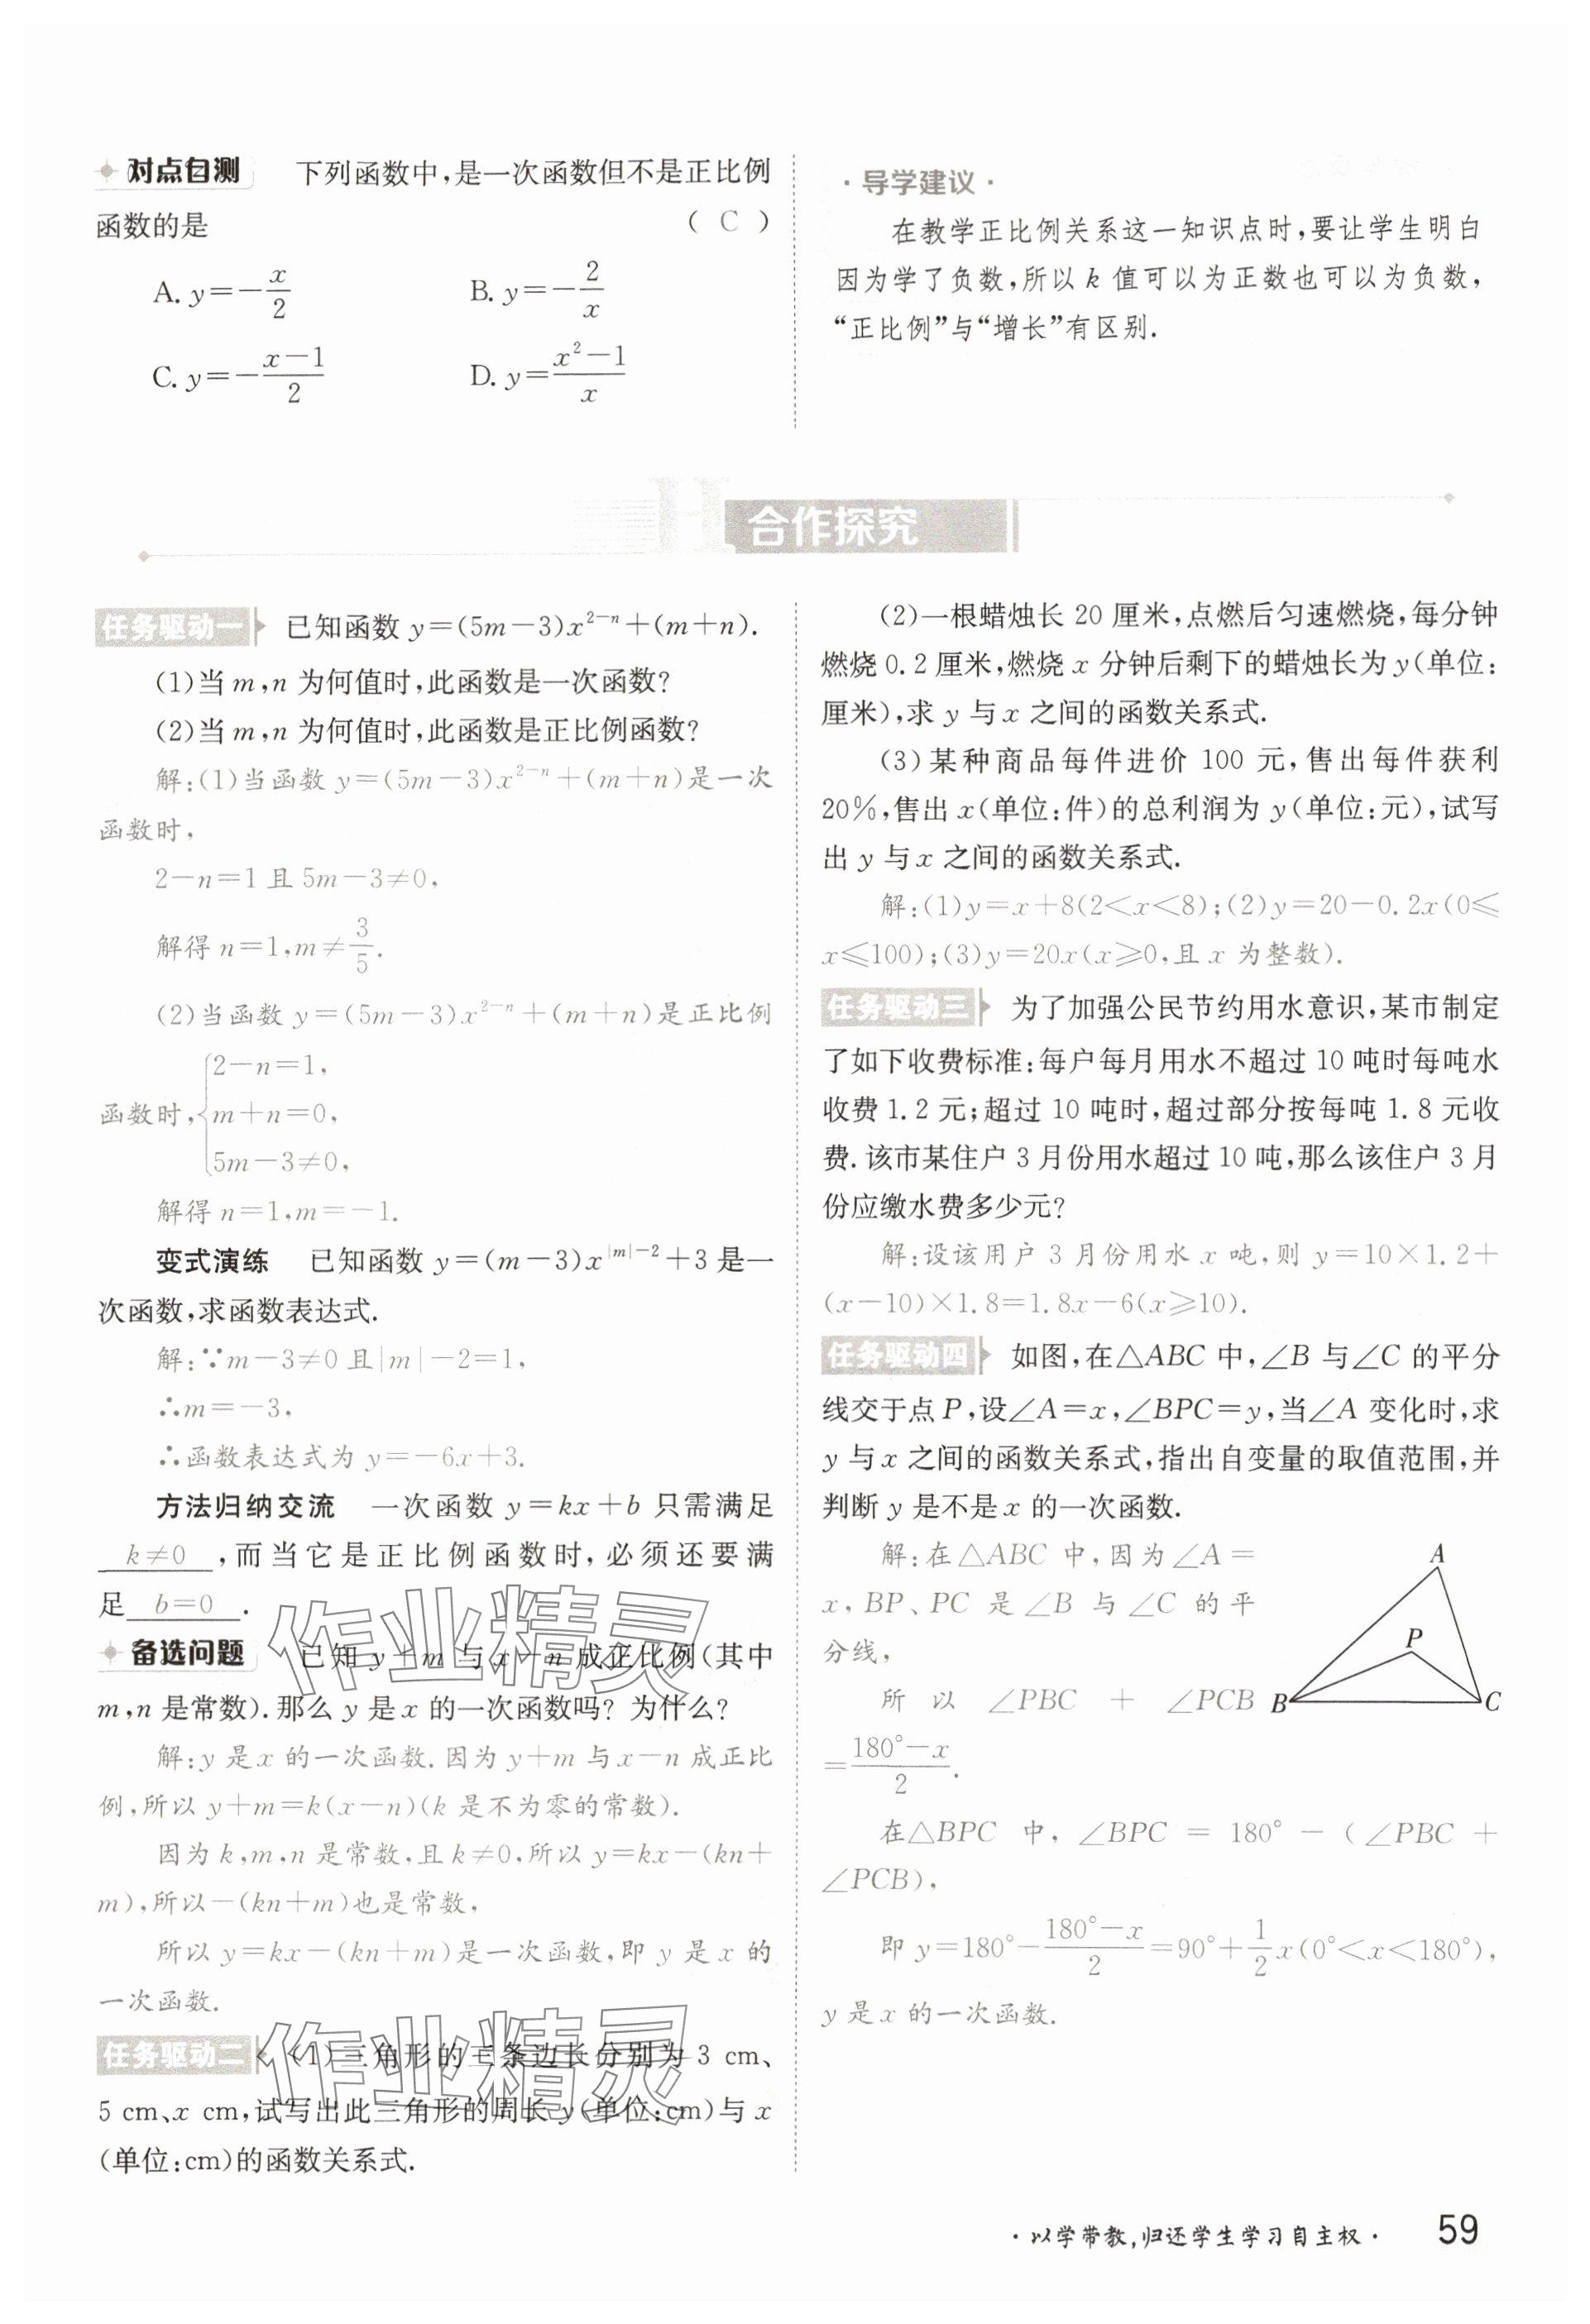 对点自测 下列函数中,是一次函数但不是正比例
函数的是 ( C )
A. y=-x/2 B. y=-2/x
C. y=-(x-1)/2 D. y=(x²-1)/x
·导学建议·
在教学正比例关系这一知识点时,要让学生明白
因为学了负数,所以 k 值可以为正数也可以为负数,
“正比例”与“增长”有区别.
H 合作探究
任务驱动一 已知函数 y=(5m-3)x²⁻ⁿ+(m+n).
(1)当 m,n 为何值时,此函数是一次函数?
(2)当 m,n 为何值时,此函数是正比例函数?
解:(1)当函数 y=(5m-3)x²⁻ⁿ+(m+n)是一次
函数时,
2-n=1 且 5m-3≠0,
解得 n=1,m≠3/5.
(2)当函数 y=(5m-3)x²⁻ⁿ+(m+n)是正比例
2-n=1,
函数时,{m+n=0,
5m-3≠0,
解得 n=1,m=-1.
变式演练 已知函数 y=(m-3)x^(|m|-2)+3 是一
次函数,求函数表达式.
解:∵m-3≠0 且|m|-2=1,
∴m=-3,
∴函数表达式为 y=-6x+3.
方法归纳交流 一次函数 y=kx+b 只需满足
k≠0 ,而当它是正比例函数时,必须还要满
足 b=0 .
备选问题 已知 y+m 与 x-n 成正比例(其中
m,n 是常数).那么 y 是 x 的一次函数吗? 为什么?
解:y 是 x 的一次函数.因为 y+m 与 x-n 成正比
例,所以 y+m=k(x-n)(k 是不为零的常数).
因为 k,m,n 是常数,且 k≠0,所以 y=kx-(kn+
m),所以-(kn+m)也是常数,
所以 y=kx-(kn+m)是一次函数,即 y 是 x 的
一次函数.
任务驱动二 (1)三角形的三条边长分别为 3 cm、
5 cm、x cm,试写出此三角形的周长 y(单位:cm)与 x
(单位:cm)的函数关系式.
(2)一根蜡烛长 20 厘米,点燃后匀速燃烧,每分钟
燃烧 0.2 厘米,燃烧 x 分钟后剩下的蜡烛长为 y(单位:
厘米),求 y 与 x 之间的函数关系式.
(3)某种商品每件进价 100 元,售出每件获利
20%,售出 x(单位:件)的总利润为 y(单位:元),试写
出 y 与 x 之间的函数关系式.
解:(1)y=x+8(2<x<8);(2)y=20-0.2x(0≤
x≤100);(3)y=20x(x≥0,且 x 为整数).
任务驱动三 为了加强公民节约用水意识,某市制定
了如下收费标准:每户每月用水不超过 10 吨时每吨水
收费 1.2 元;超过 10 吨时,超过部分按每吨 1.8 元收
费.该市某住户 3 月份用水超过 10 吨,那么该住户 3 月
份应缴水费多少元?
解:设该用户 3 月份用水 x 吨,则 y=10×1.2+
(x-10)×1.8=1.8x-6(x≥10).
任务驱动四 如图,在△ABC 中,∠B 与∠C 的平分
线交于点 P,设∠A=x,∠BPC=y,当∠A 变化时,求
y 与 x 之间的函数关系式,指出自变量的取值范围,并
判断 y 是不是 x 的一次函数.
解:在△ABC 中,因为∠A=
x,BP、PC 是∠B 与∠C 的平
分线,
所以 ∠PBC + ∠PCB
=(180°-x)/2.
A
P
B
C
在△BPC 中,∠BPC = 180° - (∠PBC +
∠PCB),
即 y=180°-(180°-x)/2=90°+1/2x(0°<x<180°),
y 是 x 的一次函数.
作业精灵
作业精灵
·以学带教,归还学生学习自主权· 59